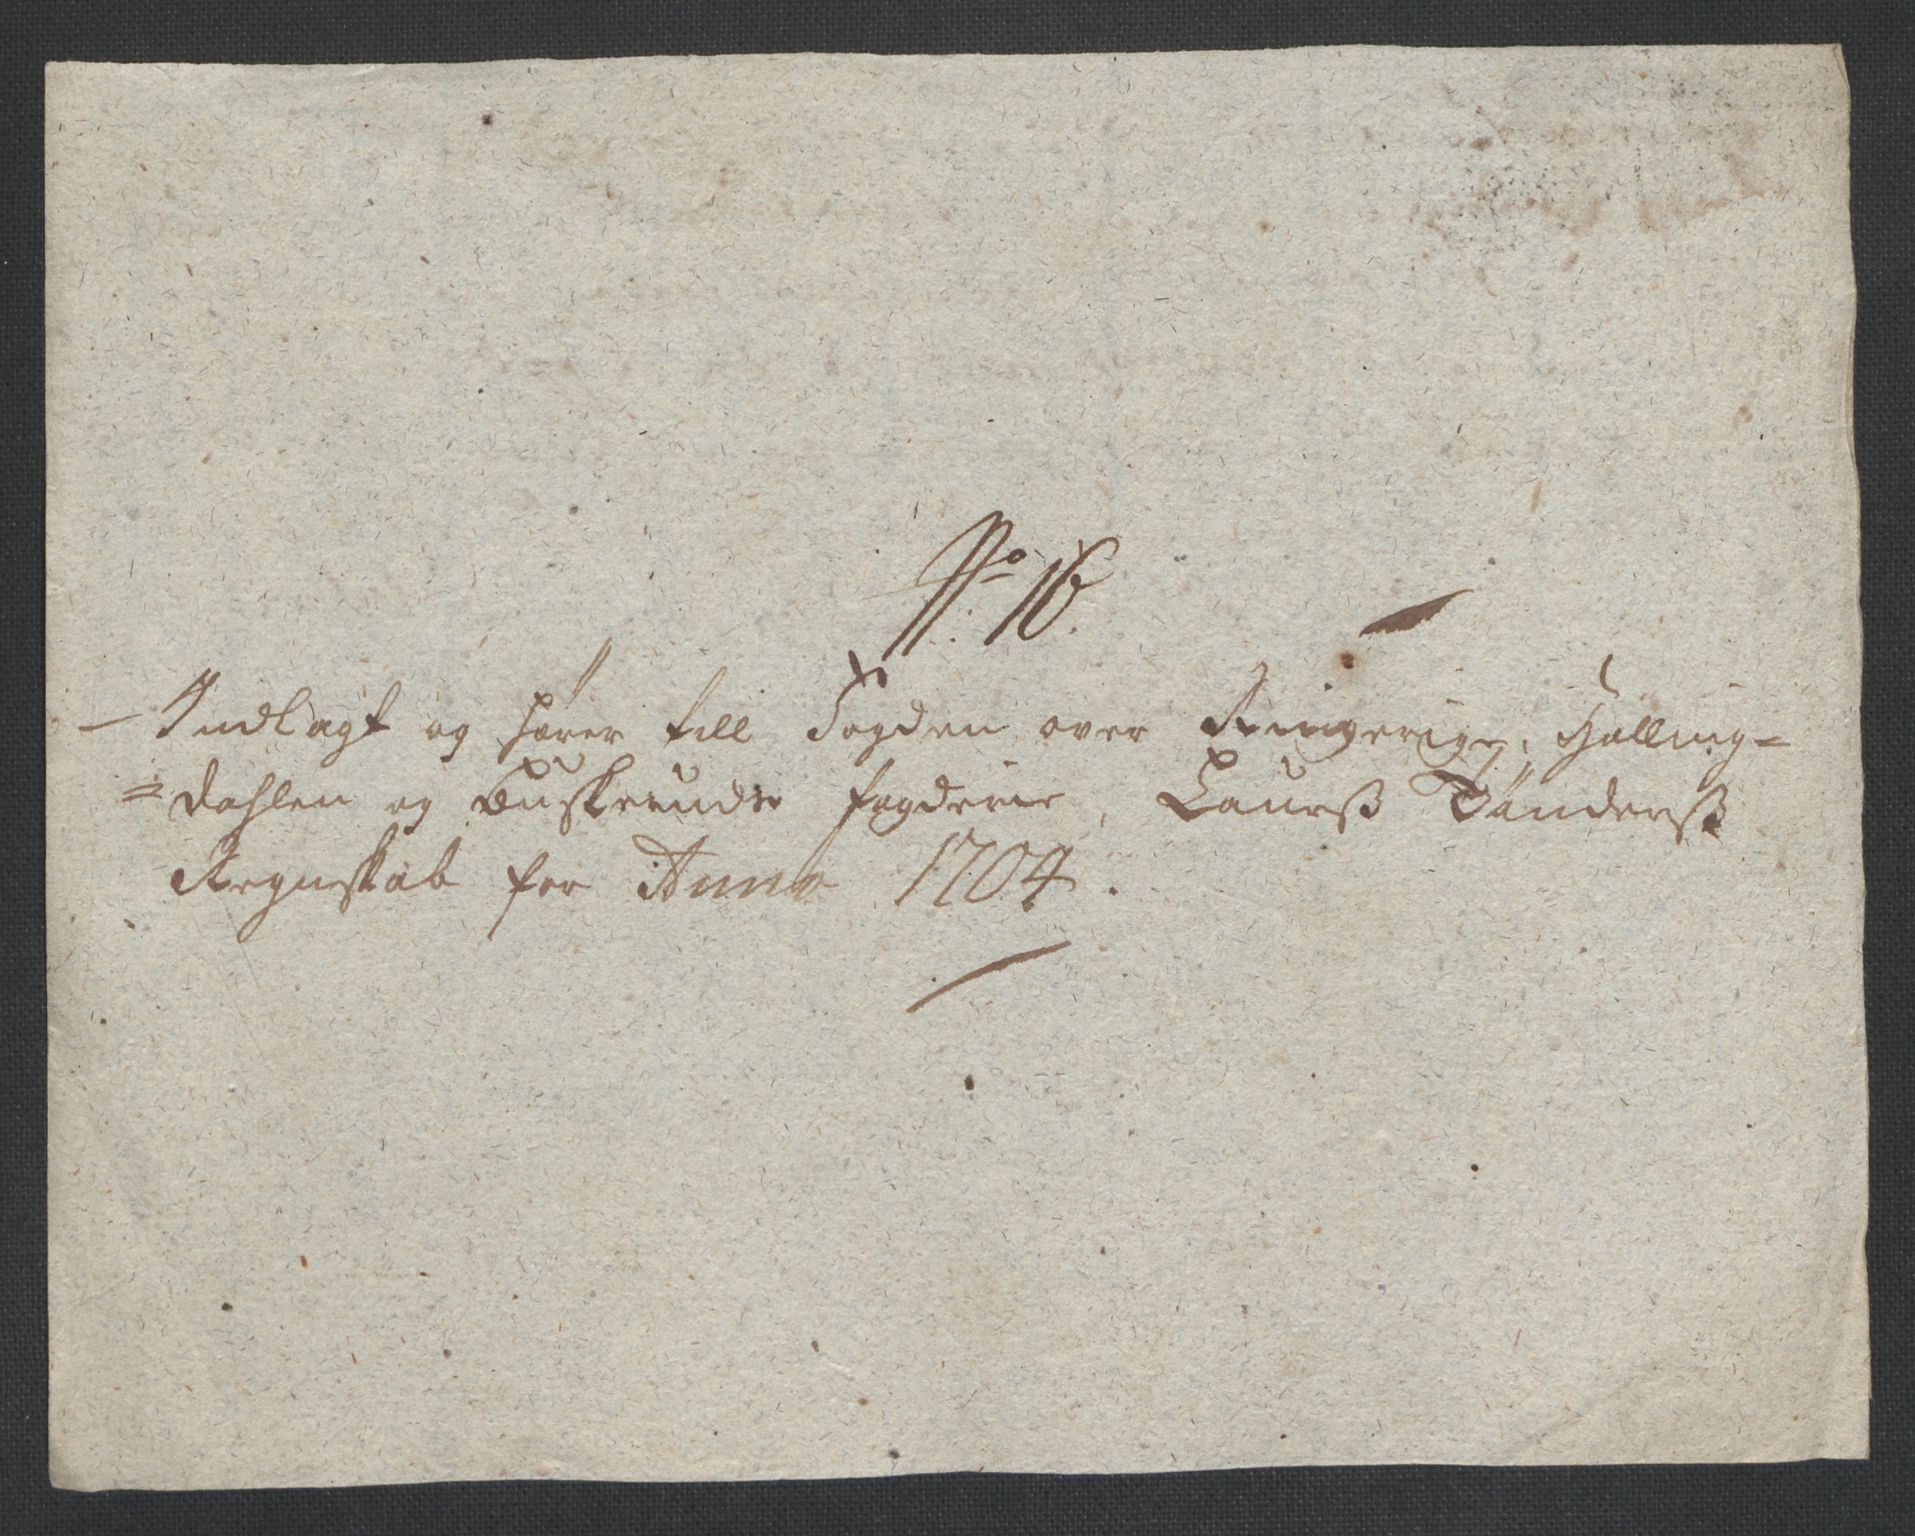 No: 16.
Indlagt og hører till Fogden over Ringerige, Halling-
=dahlen og Buskeruds fogderie, Laurß Tønderß
Regnskab for Anno 1704.